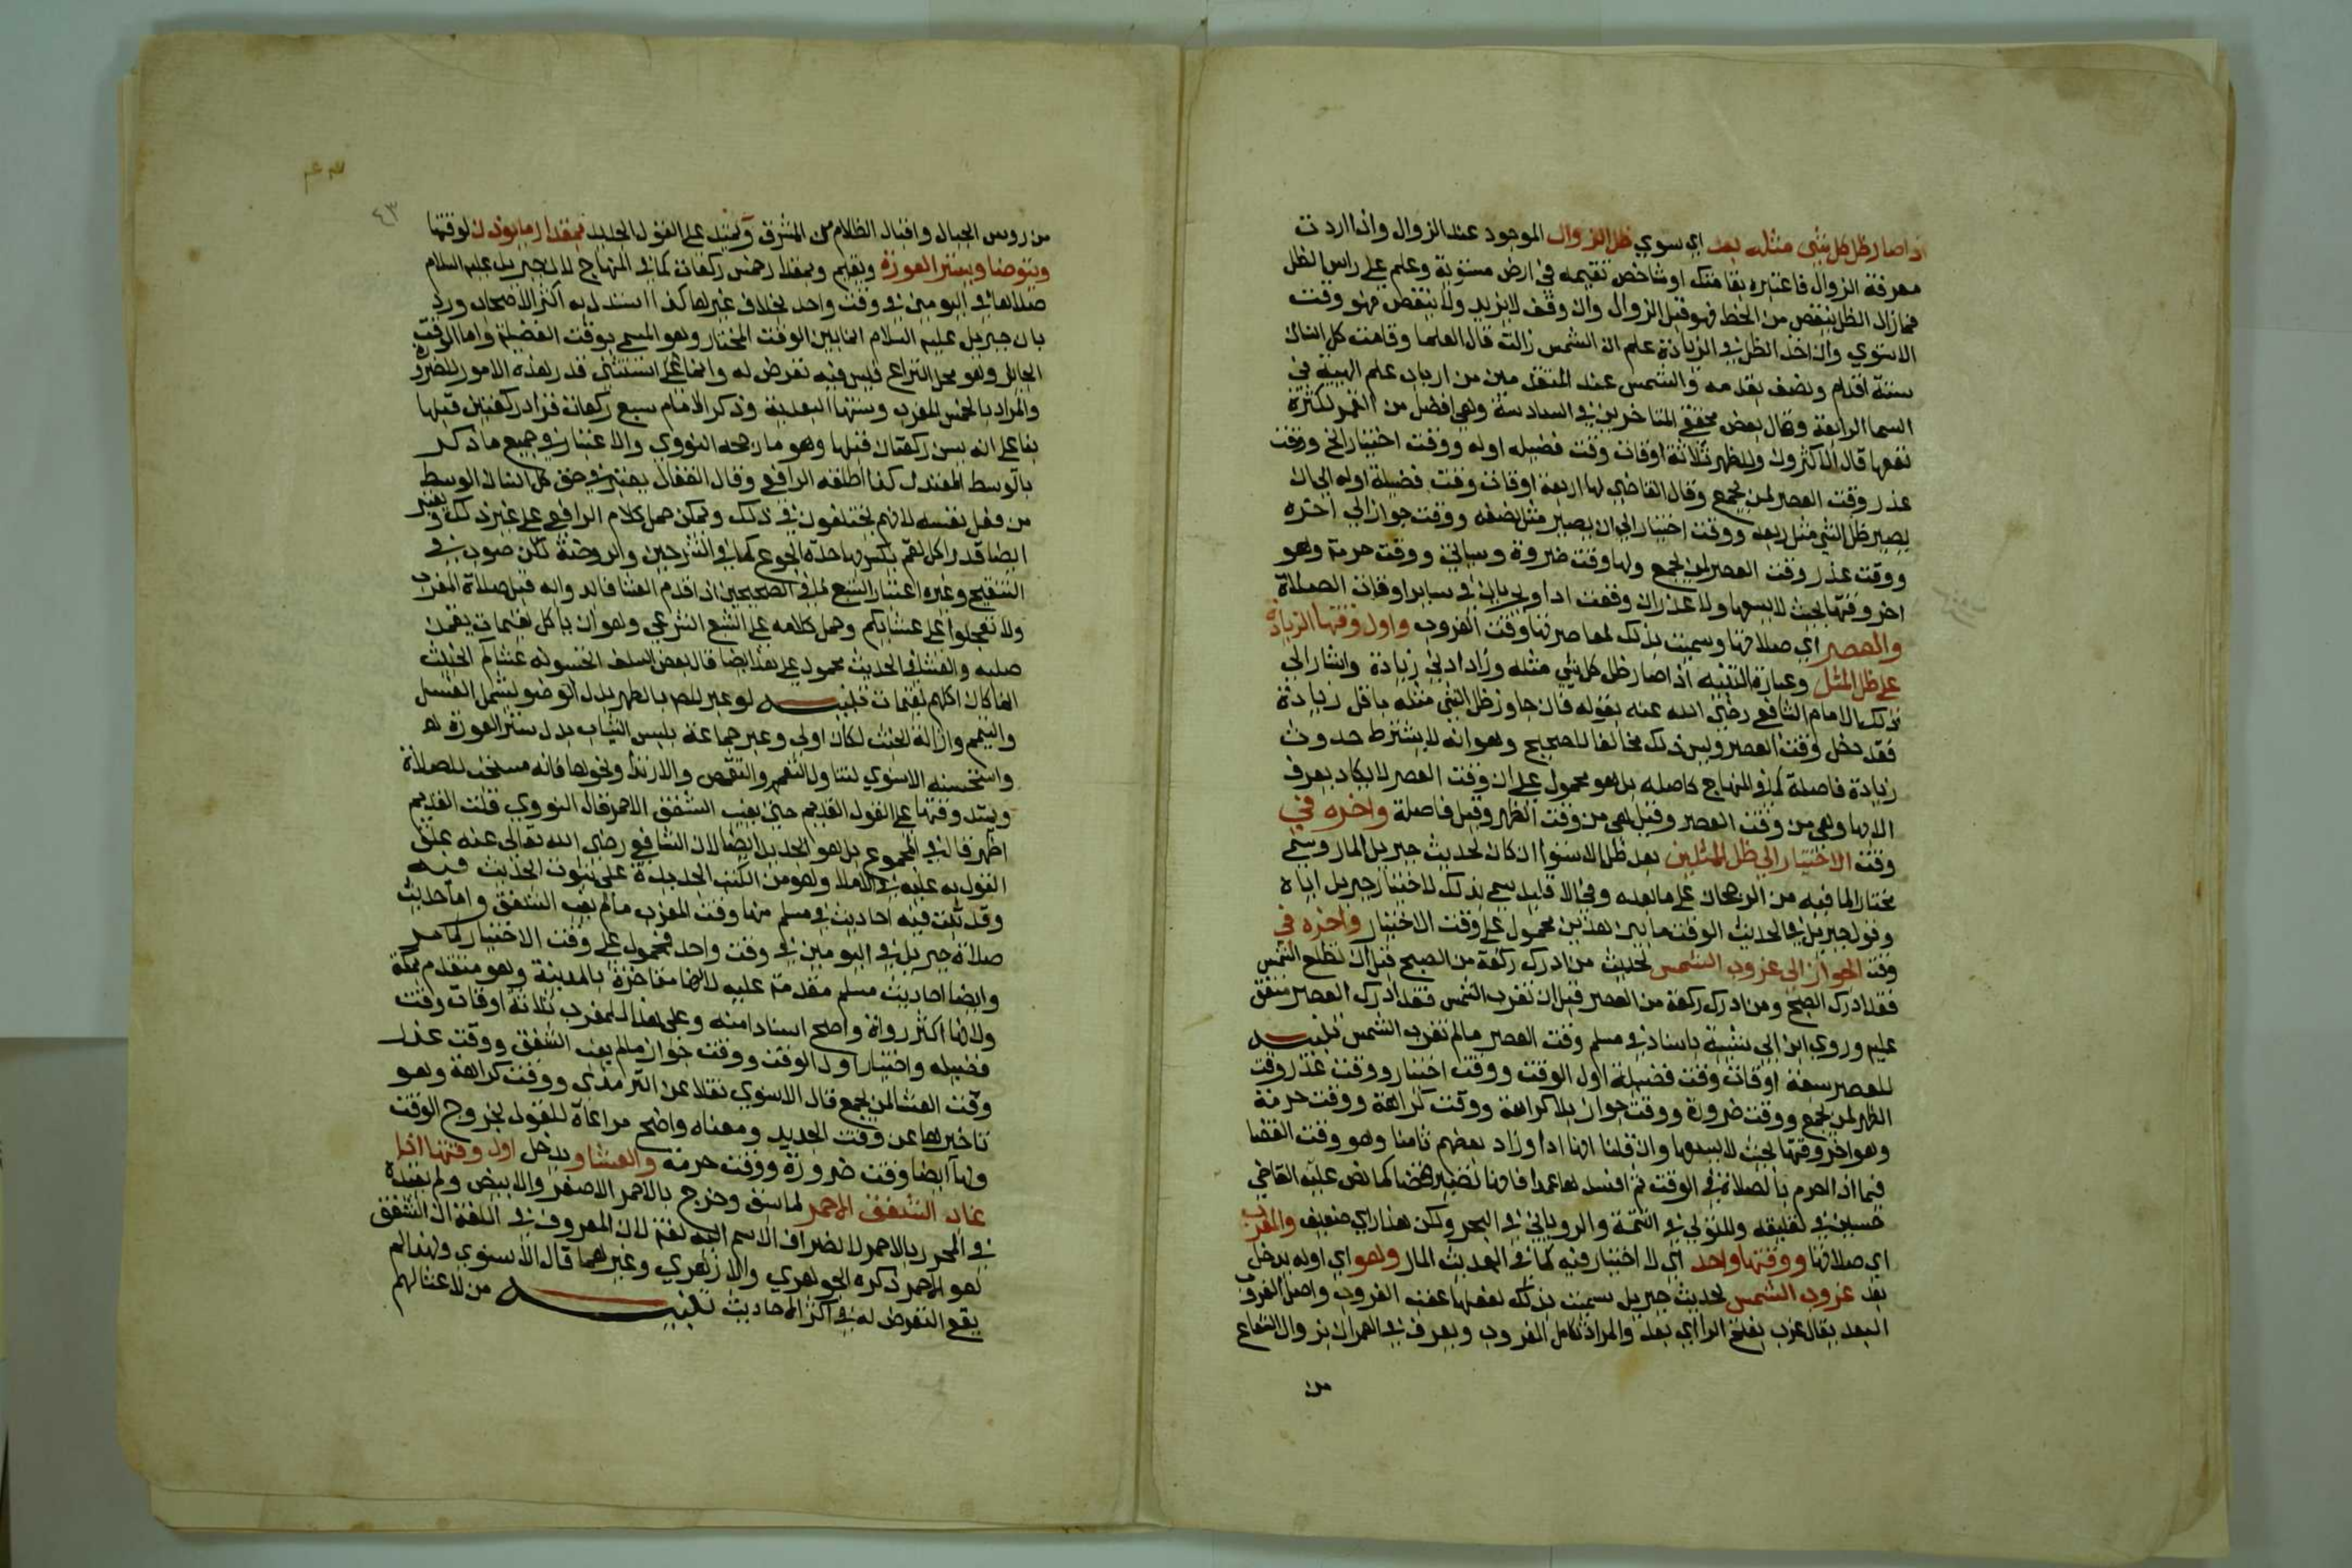 اذا صار ظل كل شي مثله بعد اي سوي ظل الزوال الموجود عند الزوال واذا اردت
معرفة الزوال فاعتبره بقامتك او شاخص تقيمه في ارض مستوية وعلم علي راس الظل
فما زال الظل ينقص من الخط فهو قبل الزوال وان وقف لا يزيد ولا ينقص فهو وقت
الاستوي وان اخذ الظل في الزيادة علم ان الشمس زالت قال العلما وقامت كل انسان
ستة اقدام ونصف بقدمه والشمس عند المتقدمين من ارباب علم الهيية في
السما الرابعة وقال بعض محققي المتاخرين في السادسة وهي افضل من القمر لكثرة
نفعها قال الاكثرون وللظهر ثلاثة اوقات وقت فضيله اوله ووقت اختيار الخ ووقت
عذر وقت العصر لمن يجمع وقال القاضي لها اربعة اوقات وقت فضيلة اوله الي ان
يصير ظل الشي مثل ربعه ووقت اختيار الي ان يصير مثل نصفه ووقت جواز الي اخره
ووقت عذر وقت العصر لمن يجمع ولها وقت ضروة وسياتي ووقت حرمة وهو
اخر وقتها بحيث لا يسعها ولا عذر ان وقعت ادا ويجريان في ساير اوقات الصلاة
والعصر اي صلاتها وسميت بذلك لمعاصرتها وقت الغروب واول وقتها الزيادة
علي ظل المثل وعبارة التنبيه اذا صار ظل كل شي مثله وزاد ادني زيادة واشار الي
ذلك الامام الشافعي رضي الله عنه بقوله فان جاوز ظل الشي مثله باقل زيادة
فقد دخل وقت العصر وليس ذلك مخالفا للصحيح وهو انه لا يشترط حدوث
زيادة فاصلة كما في المنهاج كاصله بل هو محمول علي ان وقت العصر لا يكاد يعرف
الا بها وهي من وقت العصر وقيل هي من وقت الظهر وقيل فاصلة واخره في
وقت الاختيار الي ظل المثلين بعد ظل الاستوا ان كان لحديث جبريل المار وسمي
مختارا لما فيه من الرجحان علي ما بعده وفي الاقليد سمي بذلك لاختيار جبريل اياه
وقول جبريل في الحديث الوقت ما بين هذين محمول علي وقت الاختيار واخره في
وقت الجواز الي غروب الشمس لحديث من ادرك ركعة من الصبح قبل ان تطلع الشمس
فقد ادرك الصبح ومن ادرك ركعة من العصر قبل ان تغرب الشمس فقد ادرك العصر متفق
عليه وروي ابن ابي شيبة باسناد في مسلم وقت العصر ما لم تغرب الشمس تنبيه
للعصر سبعة اوقات وقت فضيلة اول الوقت ووقت اختيار ووقت عذر وقت
الظهر لمن يجمع ووقت ضرورة ووقت جواز بلا كراهة ووقت كراهة ووقت حرمة
وهو اخر وقتها بحيث لا يسعها وان قلنا انها ادا وزاد بعضهم ثامنا وهو وقت القضا
فيما اذا احرم بالصلاة في الوقت ثم افسدها عمدا فانها تصير قضا كما نص عليه القاضي
حسين في تعليقه والمتولي في التتمة والروياني في البحر ولكن هذا راي ضعيف والمغرب
اي صلاتها ووقتها واحد اي لا اختيار فيه كما في الحديث المار وهو اي اوله يدخل
بعد غروب الشمس لحديث جبريل سميت بذلك لفعلها عقب الغروب واصل الغروب
البعد يقال غرب بفتح الرا اي بعد والمراد تكامل الغروب ويعرف في العمران بزوال الشعاع
من
٤٣
من روس الجبال واقبال الظلام من المشرق ويمتد علي القول الجديد بمقدار ما يوذن لوقتها
ويتوضا ويستر العورة ويقيم وبمقدار خمس ركعات كما في المنهاج لان جبريل عليه السلام
صلاها في اليومين في وقت واحد بخلاف غيرها كذا استدل به اكثر الاصحاب ورد
بان جبريل عليه السلام انما بين الوقت المختار وهو المسمي بوقت الفضيلة واما الوقت
الجايز وهو محل النزاع فليس فيه تعرض له وانما استثني قدر هذه الامور للضرورة
والمراد بالخمس المغرب وسنتها البعدية وذكر الامام سبع ركعات فزاد ركعتين قبلها
بنا علي انه يسن ركعتان قبلها وهو ما رجحه النووي والاعتبار في جميع ما ذكر
بالوسط المعتدل كذا اطلقه الرافعي وقال القفال يعتبر في حق كل انسان الوسط
من فعل نفسه لانهم يختلفون في ذلك ويمكن حمل كلام الرافعي علي غير ذلك ويعتبر
ايضا قدر اكل لقم يكسر بها حدة الجوع كما في الشرحين والروضة لكن صوب في
التنقيح وغيره اعتبار الشبع لما في الصحيحين اذا قدم العشا فابدوا به قبل صلاة المغرب
ولا تعجلوا علي عشايكم وحمل كلامه علي الشبع الشرعي وهو ان ياكل لقيمات يقمن
صلبه والعشا في الحديث محمول علي هذا ايضا قال بعض السلف اتحسبوله عشاكم الخبيث
انما كان اكلهم لقيمات تنبيه لو عبر المص بالطهر بدل الوضو ليشمل الغسل
والتيمم وازالة الخبث لكان اولي وعبر جماعة بلبس الثياب بدل ستر العورة
واستحسنه الاسنوي لتناوله التعمم والتقمص والارتدا ونحوها فانه مستحب للصلاة
ويمتد وقتها علي القول القديم حتي يغيب الشفق الاحمر قال النووي قلت القديم
اظهر قال في المجموع بل هو الجديد ايضا لان الشافعي رضي الله تعالي عنه علق
القول به عليه في الاملا وهو من الكتب الجديدة علي ثبوت الحديث فيه
وقد ثبت فيه احاديث في مسلم منها وقت المغرب ما لم يغب الشفق واما حديث
صلاة جبريل في اليومين في وقت واحد فمحمول علي وقت الاختيار كما مر
وايضا احاديث مسلم مقدمة عليه لانها متاخرة بالمدينة وهو متقدم بمكة
ولانها اكثر رواة واصح اسنادا منه وعلي هذا للمغرب ثلاثة اوقات وقت
فضيله واختيار اول الوقت ووقت جواز ما لم يغب الشفق ووقت عذر
وقت العشا لمن يجمع قال الاسنوي نقلا عن الترمذي ووقت كراهة وهو
تاخيرها عن وقت الجديد ومعناه واضح مراعاة للقول بخروج الوقت
ولها ايضا وقت ضرورة ووقت حرمة والعشا ويدخل اول وقتها اذا
غاب الشفق الاحمر لما سبق وخرج بالاحمر الاصفر والابيض ولم يقيده
في المحرر بالاحمر لانصراف الاسم اليه لغة لان المعروف في اللغة ان الشفق
هو الاحمر ذكره الجوهري والازهري وغيرهما قال الاسنوي ولهذا لم
يقع التعرض له في اكثر الاحاديث تنبيه من لا عشا لهم